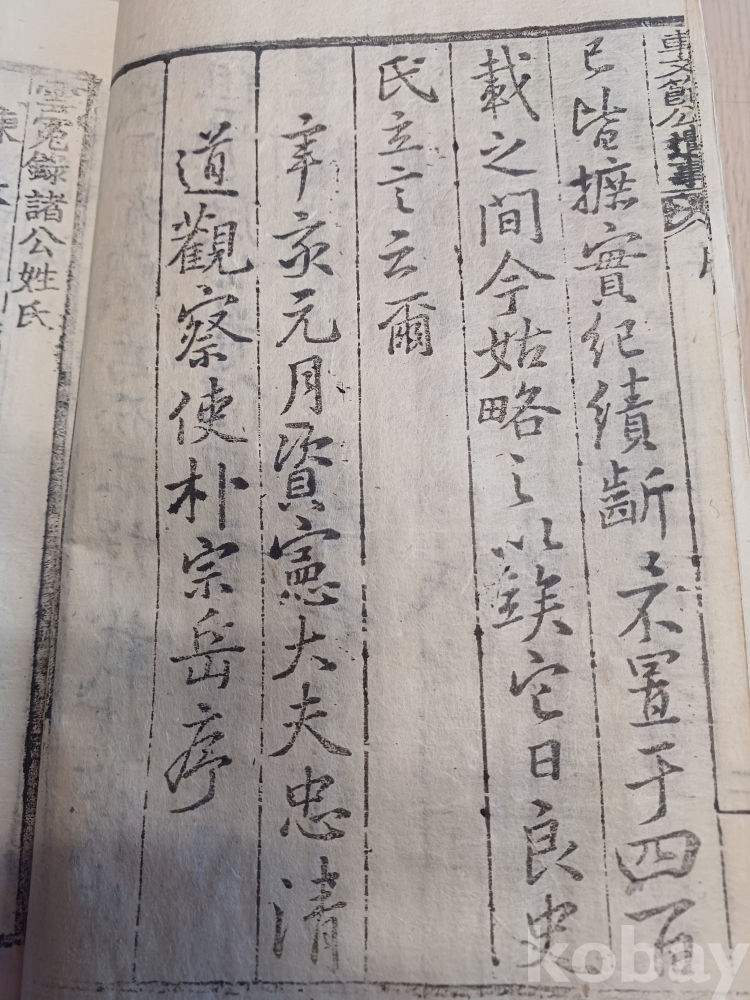 車文節公遺事
已皆摭實紀績斷〻不置于四百
載之間今姑略之以竢它日良史
氏立言云爾
辛亥元月資憲大夫忠清
道觀察使朴宗岳序
雪冤錄諸公姓氏
kobay